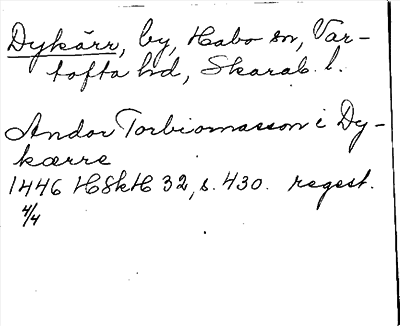 Dykärr, by, Habo sn, Var-
tofta hd, Skarab. l.
Andor Torbiornasson i Dy-
kærre
1446 HSkH 32, s. 430. regest.
4/4